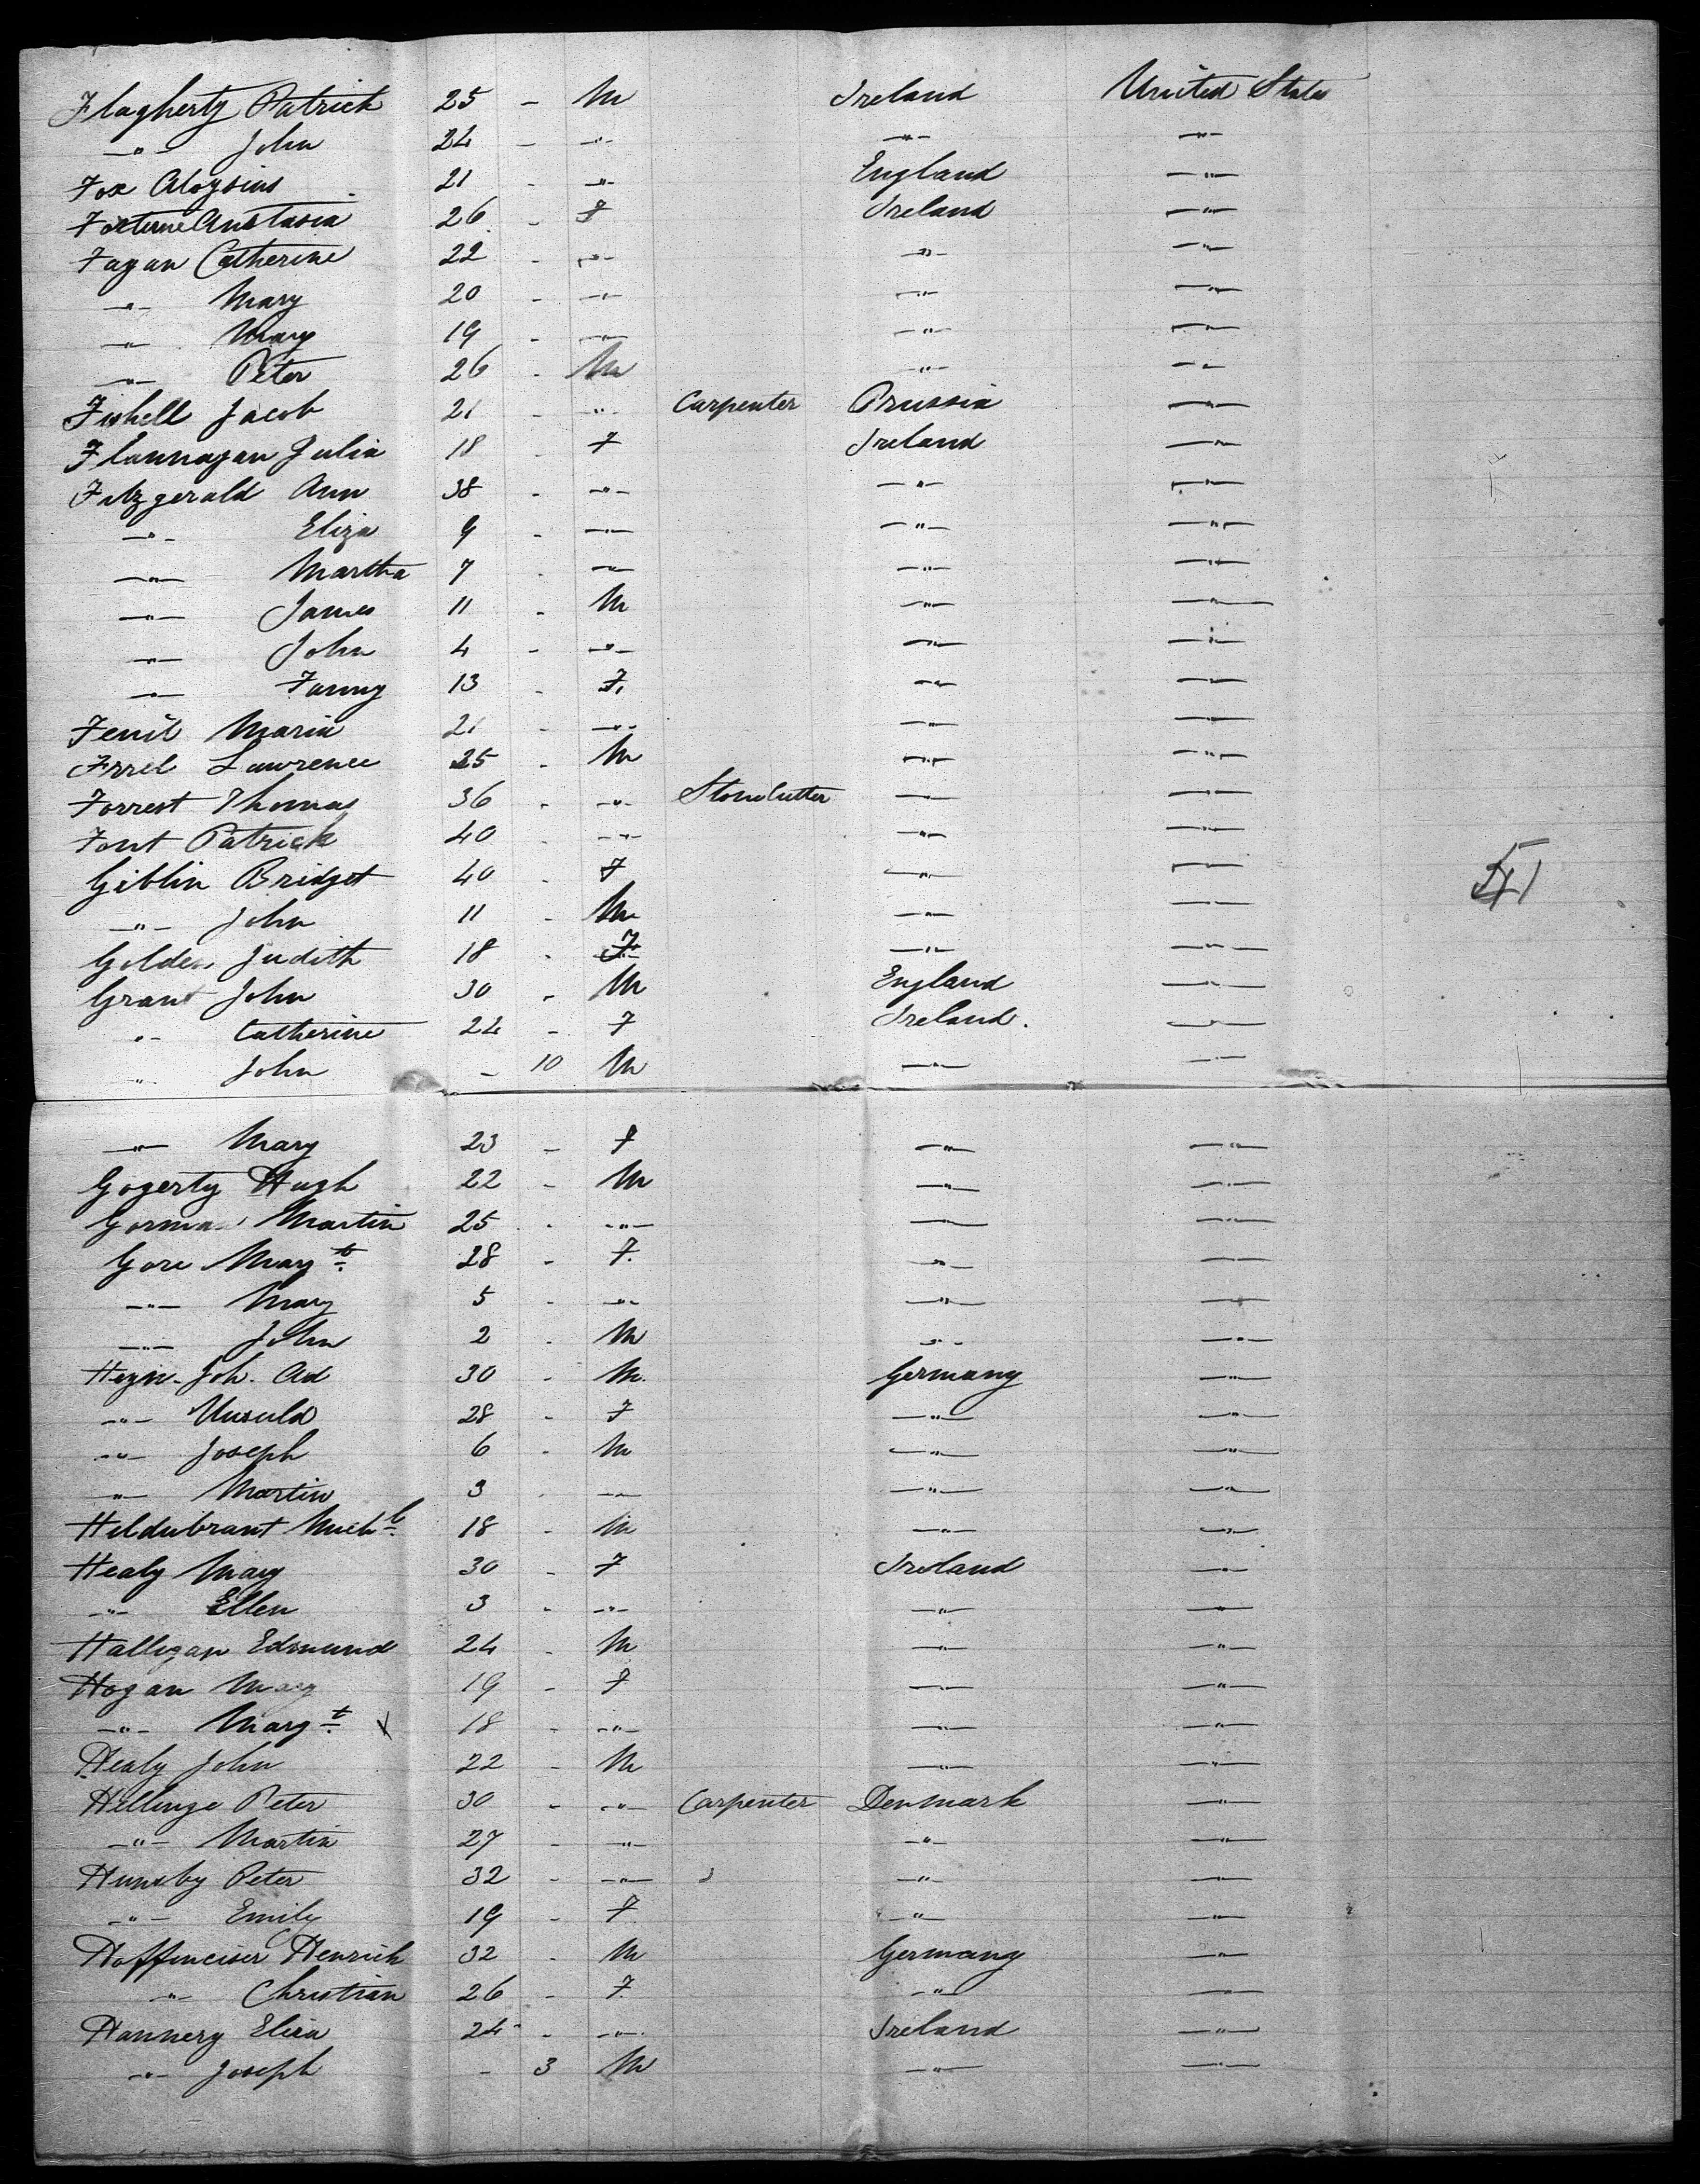 Flagherty Patrick 25 - M Ireland United States
-"- John 24 - -"- -"- -"-
Fox Aloysius 21 - -"- England -"-
Fortune Anstasia 26 - F Ireland -"-
Fagan Catherine 22 - -"- -"- -"-
-"- Mary 20 - -"- -"- -"-
-"- Mary 19 - -"- -"- -"-
-"- Peter 26 - M -"- -"-
Fishell Jacob 21 - -"- Carpenter Prussia -"-
Flannagan Julia 18 - F Ireland -"-
Fitzgerald Ann 38 - -"- -"- -"-
-"- Eliza 9 - -"- -"- -"-
-"- Martha 7 - -"- -"- -"-
-"- James 11 - M -"- -"-
-"- John 4 - -"- -"- -"-
-"- Fanny 13 - F. -"- -"-
Maria 21 - -"- -"- -"-
Lawrence 25 - M -"- -"-
Forrest Thomas 36 - -"- Stonecutter -"- -"-
Font Patrick 40 - -"- -"- -"-
Giblin Bridget 40 - F -"- -"-
-"- John 11 - M -"- -"-
Golden Judith 18 - F -"- -"-
Grant John 30 - M England -"-
-"- Catherine 24 - F Ireland. -"-
-"- John - 10 M -"- -"-
-"- Mary 23 - F -"- -"-
Gogerty Hugh 22 - M -"- -"-
Gorman Martin 25 - -"- -"- -"-
Gore Margt. 28 - F. -"- -"-
-"- Mary 5 - -"- -"- -"-
-"- John 2 - M -"- -"-
Joh. Ad 30 - M. Germany -"-
-"- 28 - F -"- -"-
-"- Joseph 6 - M -"- -"-
-"- Martin 3 - -"- -"- -"-
Hildubrant Michl. 18 - M -"- -"-
Healy Mary 30 - F Ireland -"-
-"- Ellen 3 - -"- -"- -"-
Halligan Edmund 24 - M -"- -"-
Hogan Mary 19 - F -"- -"-
-"- Margt. 18 - -"- -"- -"-
Healy John 22 - M -"- -"-
Hellinge Peter 30 - -"- Carpenter Denmark -"-
-"- Martin 27 - -"- -"- -"-
Hunsby Peter 32 - -"- -"- -"-
-"- Emily 19 - F -"- -"-
Hoffmeiser Henrich 32 - M Germany -"-
-"- Christian 26 - F. -"- -"-
Hannery Eliza 24 - -"- Ireland -"-
-"- Joseph - 3 M -"- -"-